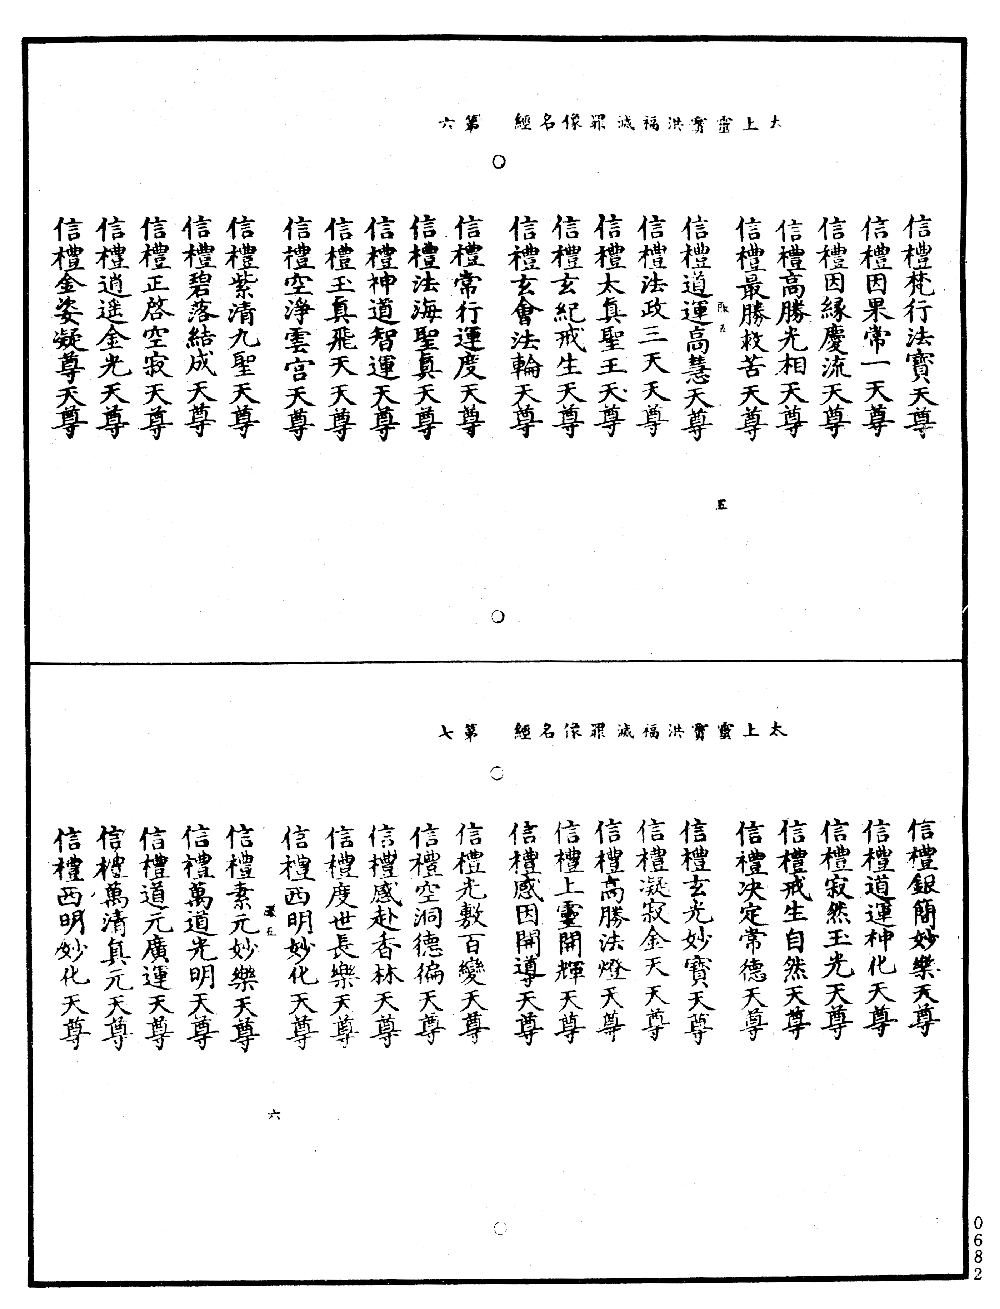 太上靈寳洪福滅罪像名經　第六
信禮梵行法寳天尊
信禮因果常一天尊
信禮因緣慶流天尊
信禮高勝光相天尊
信禮最勝救苦天尊
五
信禮道運高慧天尊
信禮法政三天天尊
信禮太真聖王天尊
信禮玄紀戒生天尊
信禮玄會法輪天尊
信禮常行運度天尊
信禮法海聖真天尊
信禮神道智運天尊
信禮玉真飛天天尊
信禮空淨雲宮天尊
信禮紫清九聖天尊
信禮碧落結成天尊
信禮正啓空寂天尊
信禮逍遥金光天尊
信禮金姿凝尊天尊
太上靈寳洪福滅罪像名經　第七
信禮銀簡妙樂天尊
信禮道運神化天尊
信禮寂然玉光天尊
信禮戒生自然天尊
信禮決定常德天尊
信禮玄光妙寳天尊
信禮凝寂金天天尊
信禮高勝法燈天尊
信禮上靈開輝天尊
信禮感因開導天尊
信禮光敷百變天尊
信禮空洞德徧天尊
信禮感赴香林天尊
信禮度世長樂天尊
信禮西明妙化天尊
六
信禮素元妙樂天尊
信禮萬道光明天尊
信禮道元廣運天尊
信禮萬清真元天尊
信禮西明妙化天尊
0682